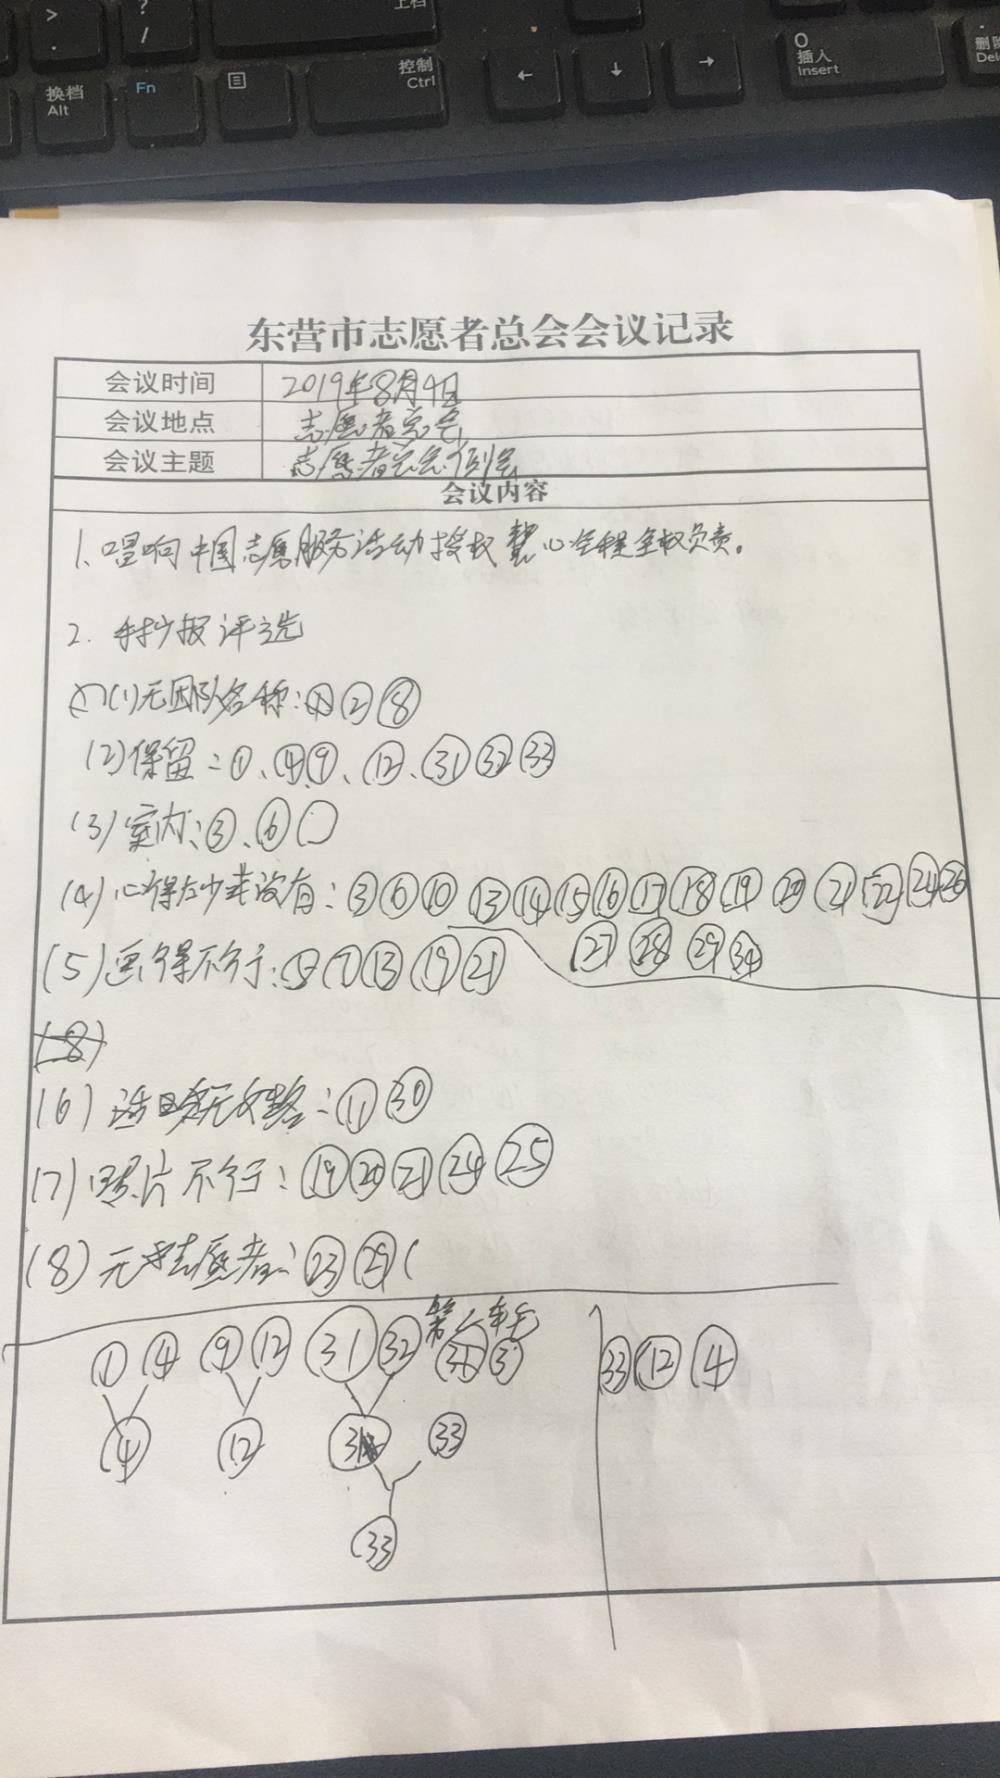 上档
>
.
?
/
换档
Alt
Fn
控制
Ctrl
←
↓
→
0
插入
Insert
.
删除
Del
东营市志愿者总会会议记录
会议时间 2019年8月4日
会议地点 志愿者总会
会议主题 志愿者总会例会
会议内容
1、唱响中国志愿服务活动授权 慧心全程全权负责。
2. 手抄报评选
(1)无团队名称:② ⑧
(2)保留:①、④⑨、⑫、㉛㉜㉝
(3)室内:③、⑥○
(4)心得太少或没有:③⑥⑩⑬⑭⑮⑯⑰⑱⑲⑳㉑㉒㉔㉖
㉗㉘㉙㉞
(5)画得不行:⑤⑦⑬⑲㉑
(8)
(6)活动:⑪㉚
(7)照片不行:⑲⑳㉑㉔㉕
(8)无志愿者:㉓㉙(
第二轮
①④ ⑨⑫ ㉛㉜ ㉝⑫④
④ ⑫ ㉝
㉝